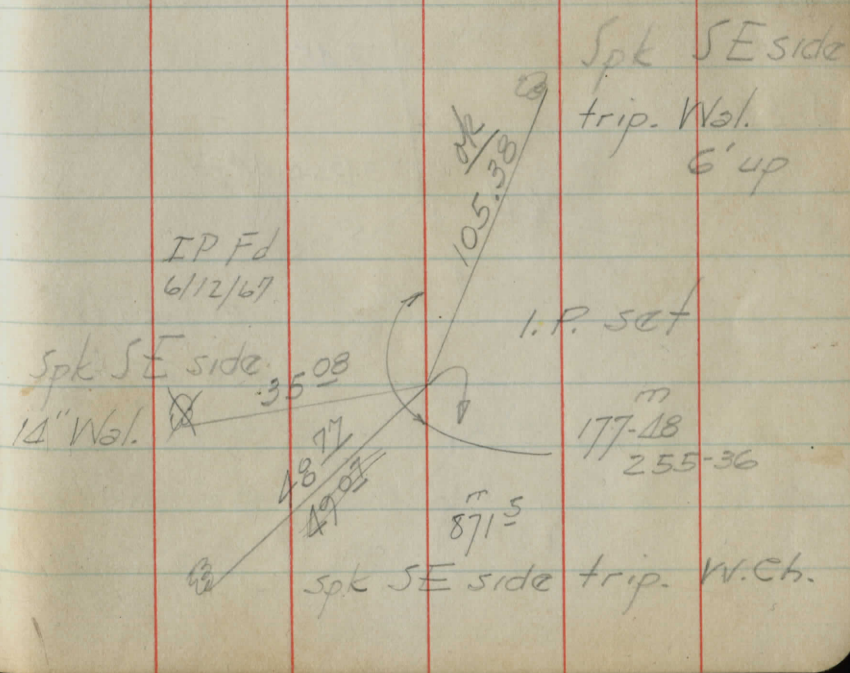 Spk SE side
trip. Wal.
6' up
ok
105.38
IP Fd
6/12/67
I.P. set
Spk SE side
14" Wal.
35 08
48 77
49 07
m
177-48
255-36
m
871 5
Spk SE side trip. W.Ch.